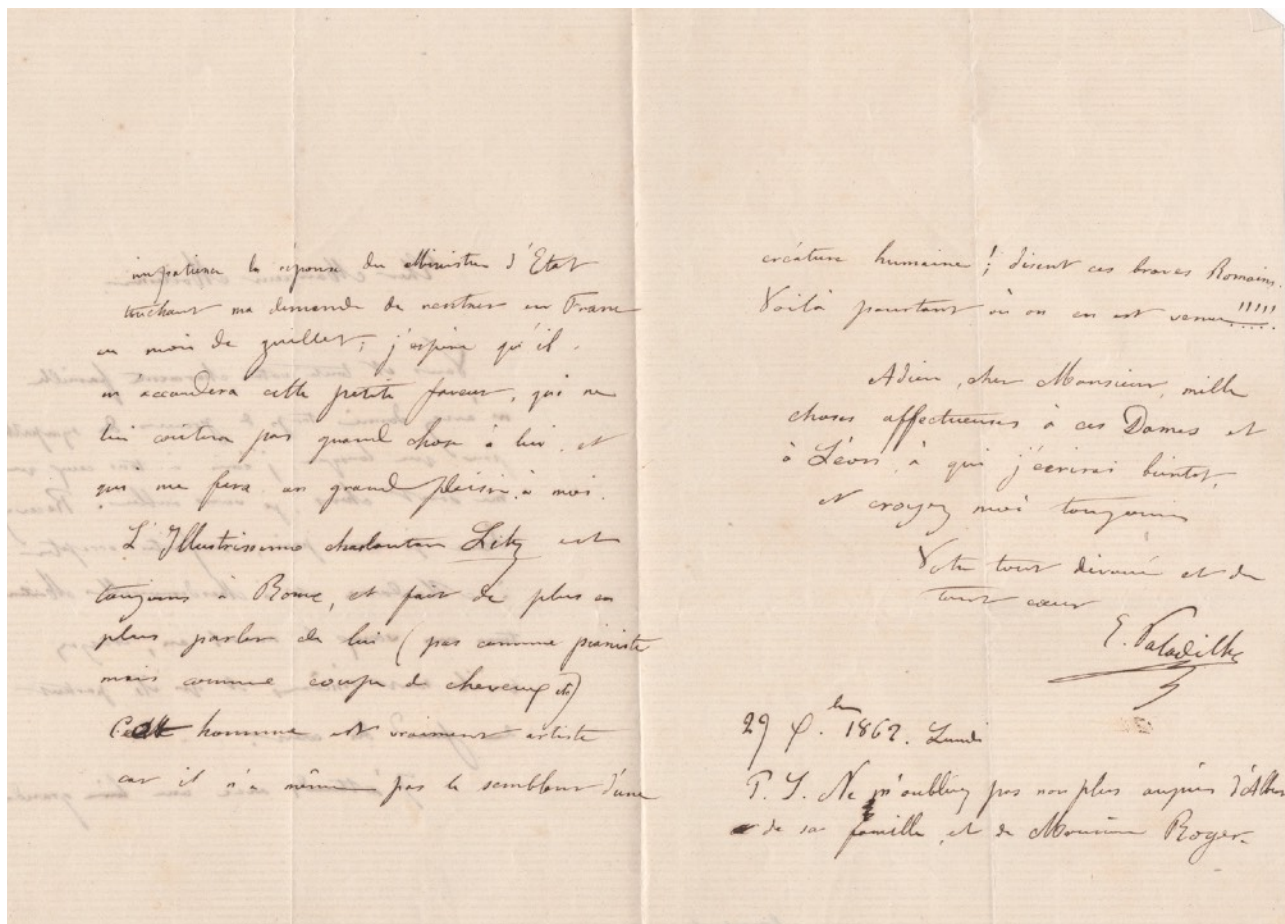 impatience la réponse du Ministre d'Etat
touchant ma demande de rentrer en France
au mois de juillet; j'espère qu'il
m'accordera cette petite faveur, qui ne
lui coûtera pas grand chose à lui, et
qui me fera un grand plaisir à moi.
L'Illustrissimo charlatan Litz est
toujours à Rome, et fait de plus en
plus parler de lui (pas comme pianiste
mais comme coupe de cheveux
homme est vraiment artiste
car il n'a même pas le semblant d'une
créature humaine! disent ces braves Romains.
Voilà pourtant où on en est venu!!!!!
Adieu, cher Monsieur, mille
choses affectueuses à ces Dames et
à Léon, à qui j'écrirai bientot,
et croyez moi toujours
Votre tout dévoué et de
tout cœur
E. Paladilhe
29 1862. Lundi
P. S. Ne m'oubliez pas non plus auprès
de sa famille, et de Monsieur Roger.